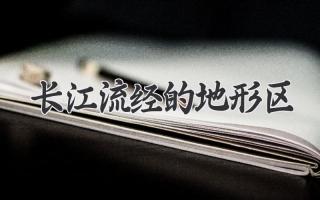 长江流经的地形区